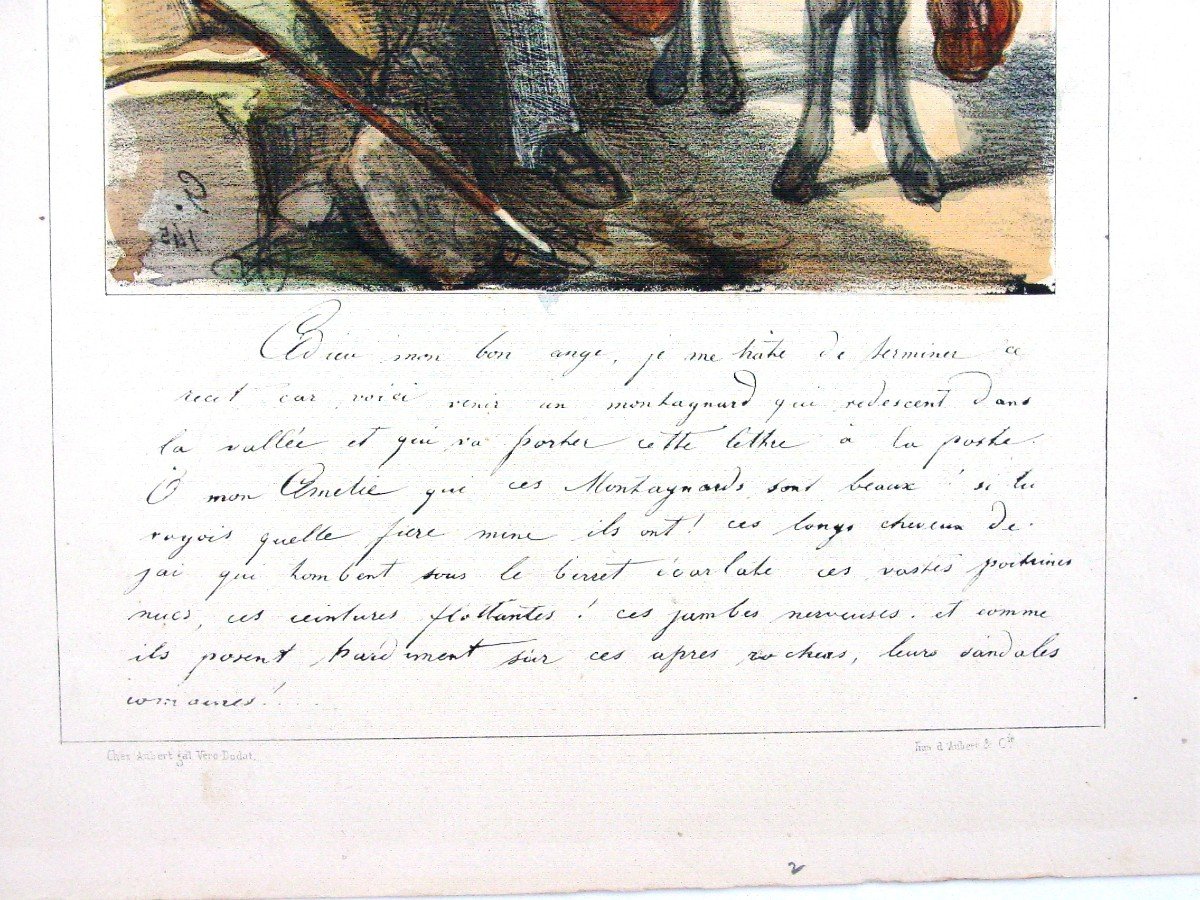 Adieu mon bon ange, je me hâte de terminer ce
recit car voici venir un montagnard qui redescent dans
la vallée et qui va porter cette lettre à la poste.
O mon Amelie que ces Montagnards sont beaux! si tu
voyois quelle fiere mine ils ont! ces longs cheveux de
jai qui tombent sous le berret écarlate ces vastes poitrines
nues, ces ceintures flottantes! ces jambes nerveuses. et comme
ils posent hardiment sur ces apres rochers, leurs sandales
Chez Aubert gal Vero Dodat.
Imp. d'Aubert & Cie
2